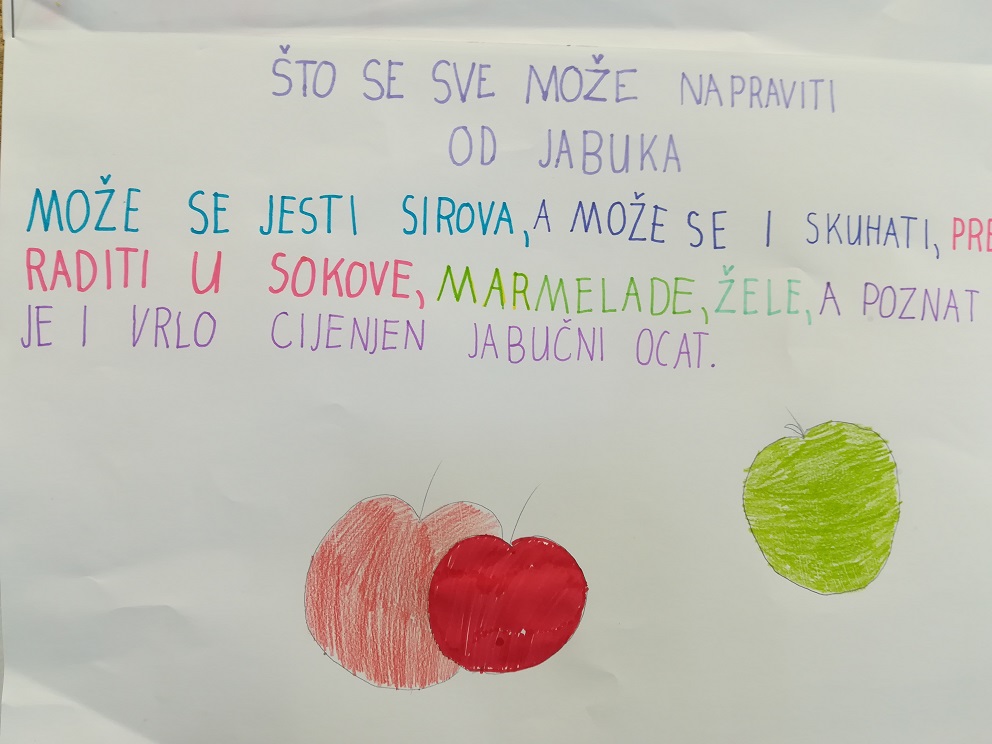 ŠTO SE SVE MOŽE NAPRAVITI
OD JABUKA
MOŽE SE JESTI SIROVA, A MOŽE SE I SKUHATI, PRE
RADITI U SOKOVE, MARMELADE, ŽELE, A POZNAT
JE I VRLO CIJENJEN JABUČNI OCAT.